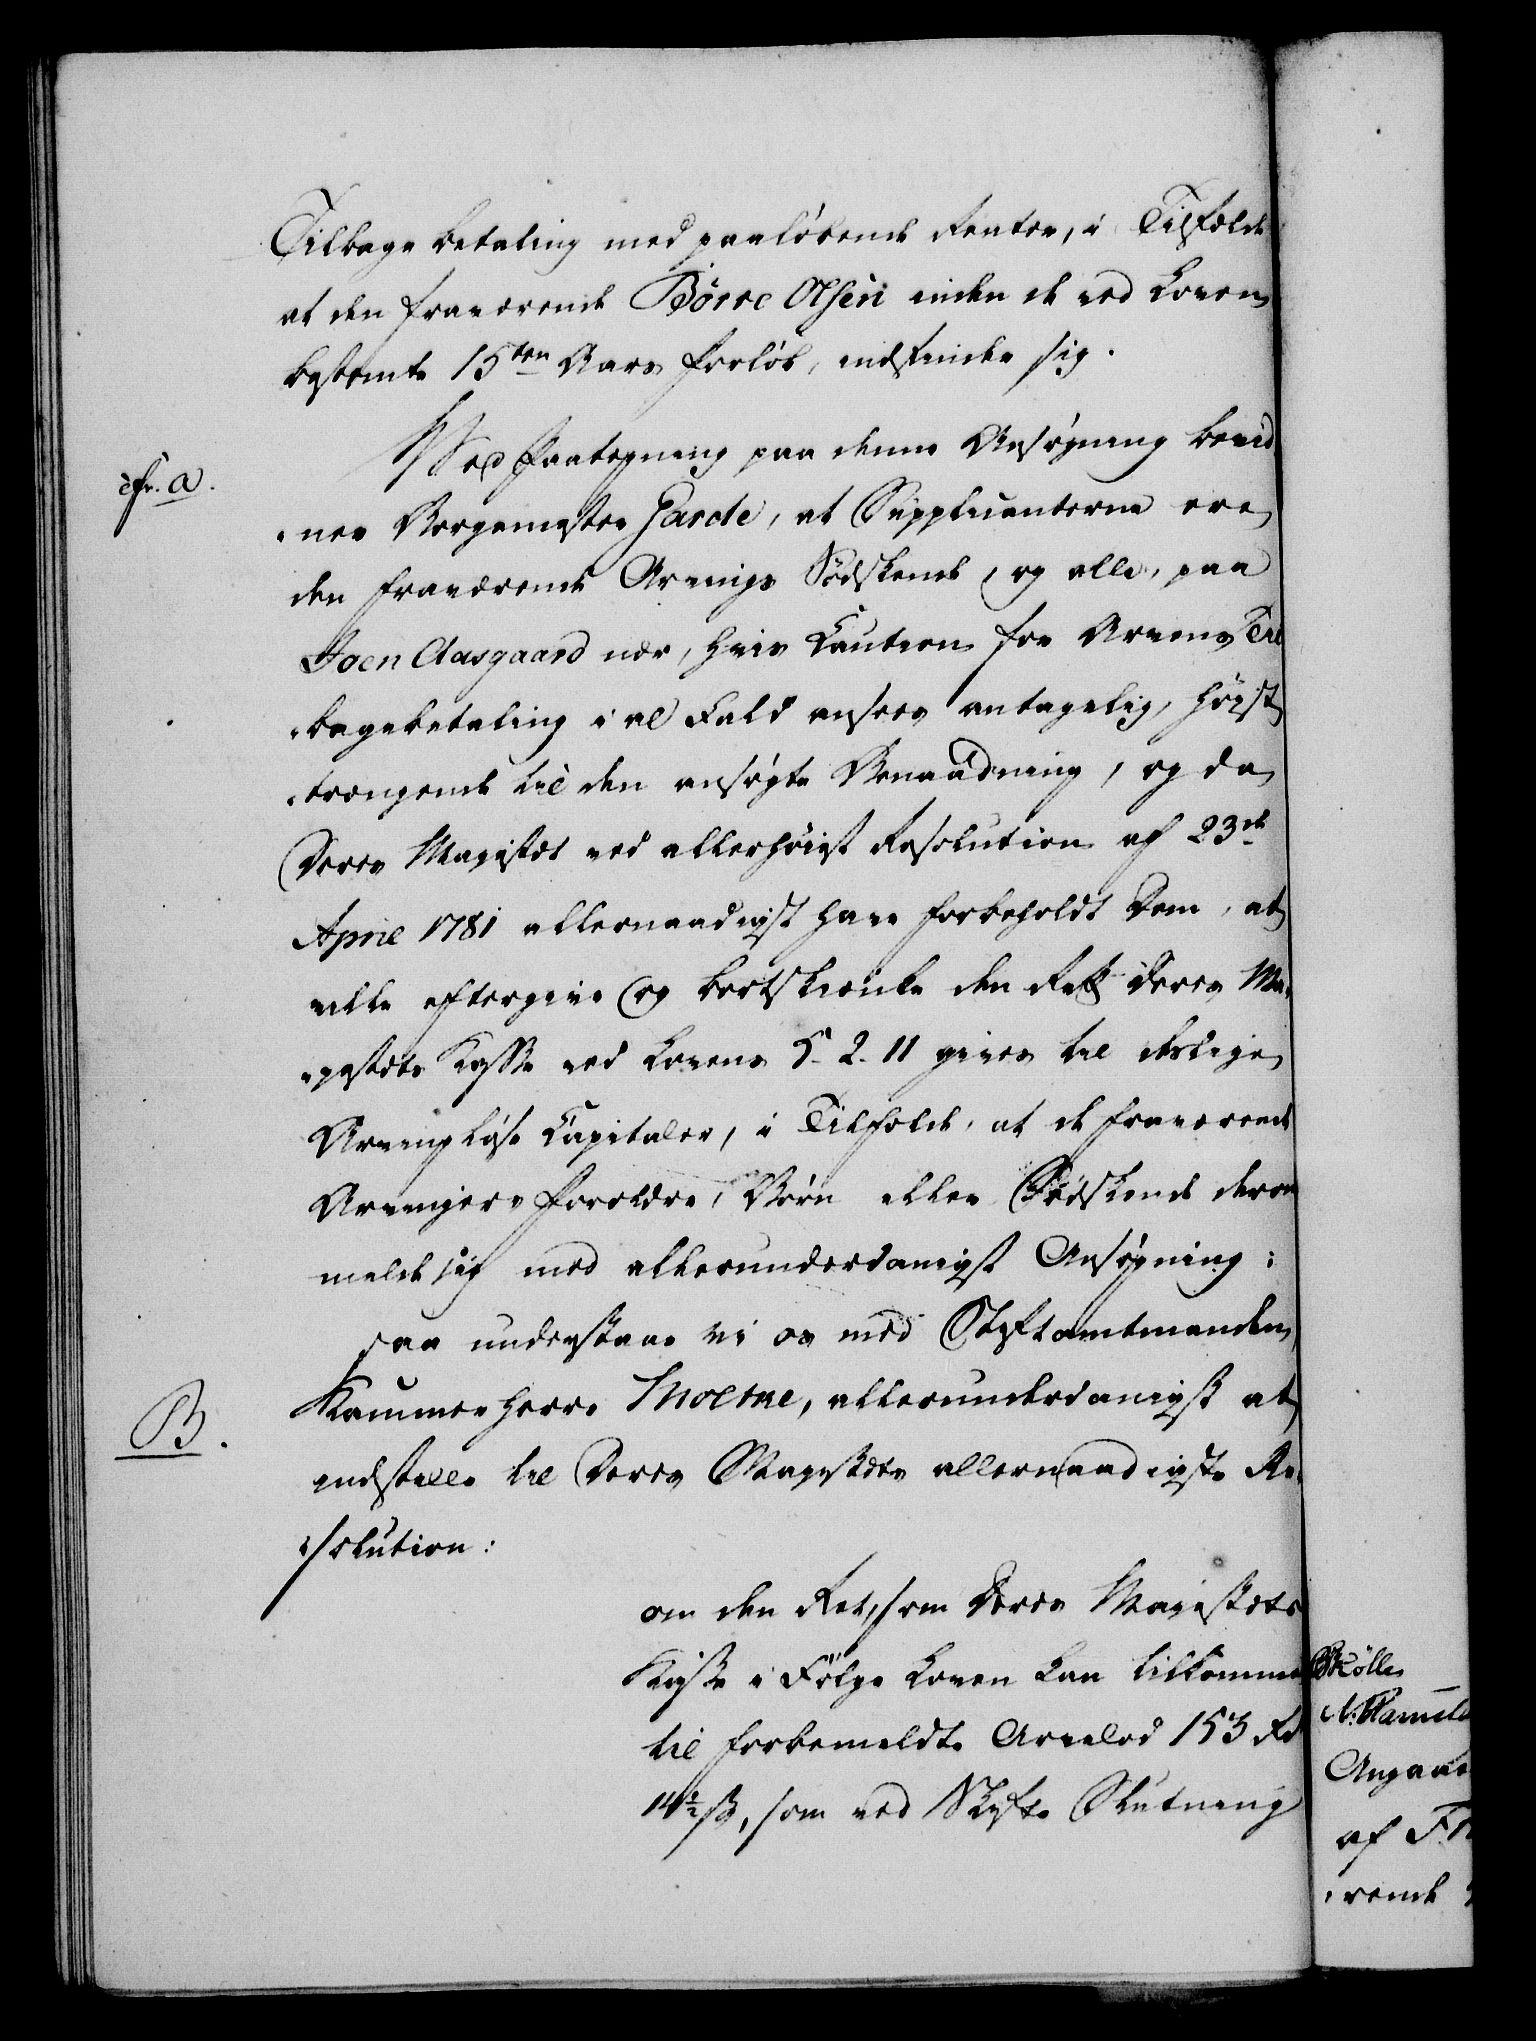 Tilbage betaling med paaløbende Renter, i Tilfælde
at den fraværende Börre Olsen inden de ved Loven
bestemte 15ten Aars Forløb, indfinder sig.
cfr. a.
Med Paategning paa denne Ansøgning bevid-
ner Borgemester Garde, at Supplicanterne ere
den fraværende Arvings Södskende, og alle, paa
Joen Aasgaard nær, hvis Caution for Arvens Til
bagebetaling i al Fald ansees antagelig, høist
trængende til den ansøgte Benaadning, og da
Deres Majestet ved allerhøiest Resolution af 23de
April 1781 allernaadigst have forbeholdt Dem, at
ville eftergive og bortskienke den Rett Deres Ma-
jestets Kasse ved Lovens 5-2-11 gives til deslige
Arvingløse Capitaler, i Tilfælde at de fraværende
Arvingers Forældre, Børn eller Södskende derom
melde sig med allerunderdanigst Ansøgning;
saa understaae vi os med Stiftamtmanden,
B.
Kammerherre Moltke, allerunderdanigst at
indstille til Deres Majestets allernaadigste Re-
solution:
om den Ret, som Deres Majestets
Kasse i Følge Loven kan tilkomme
til forbemeldte Arvelod 153 Rd
14½ ß, som ved Skifte Slutning
Angaae
af
rende